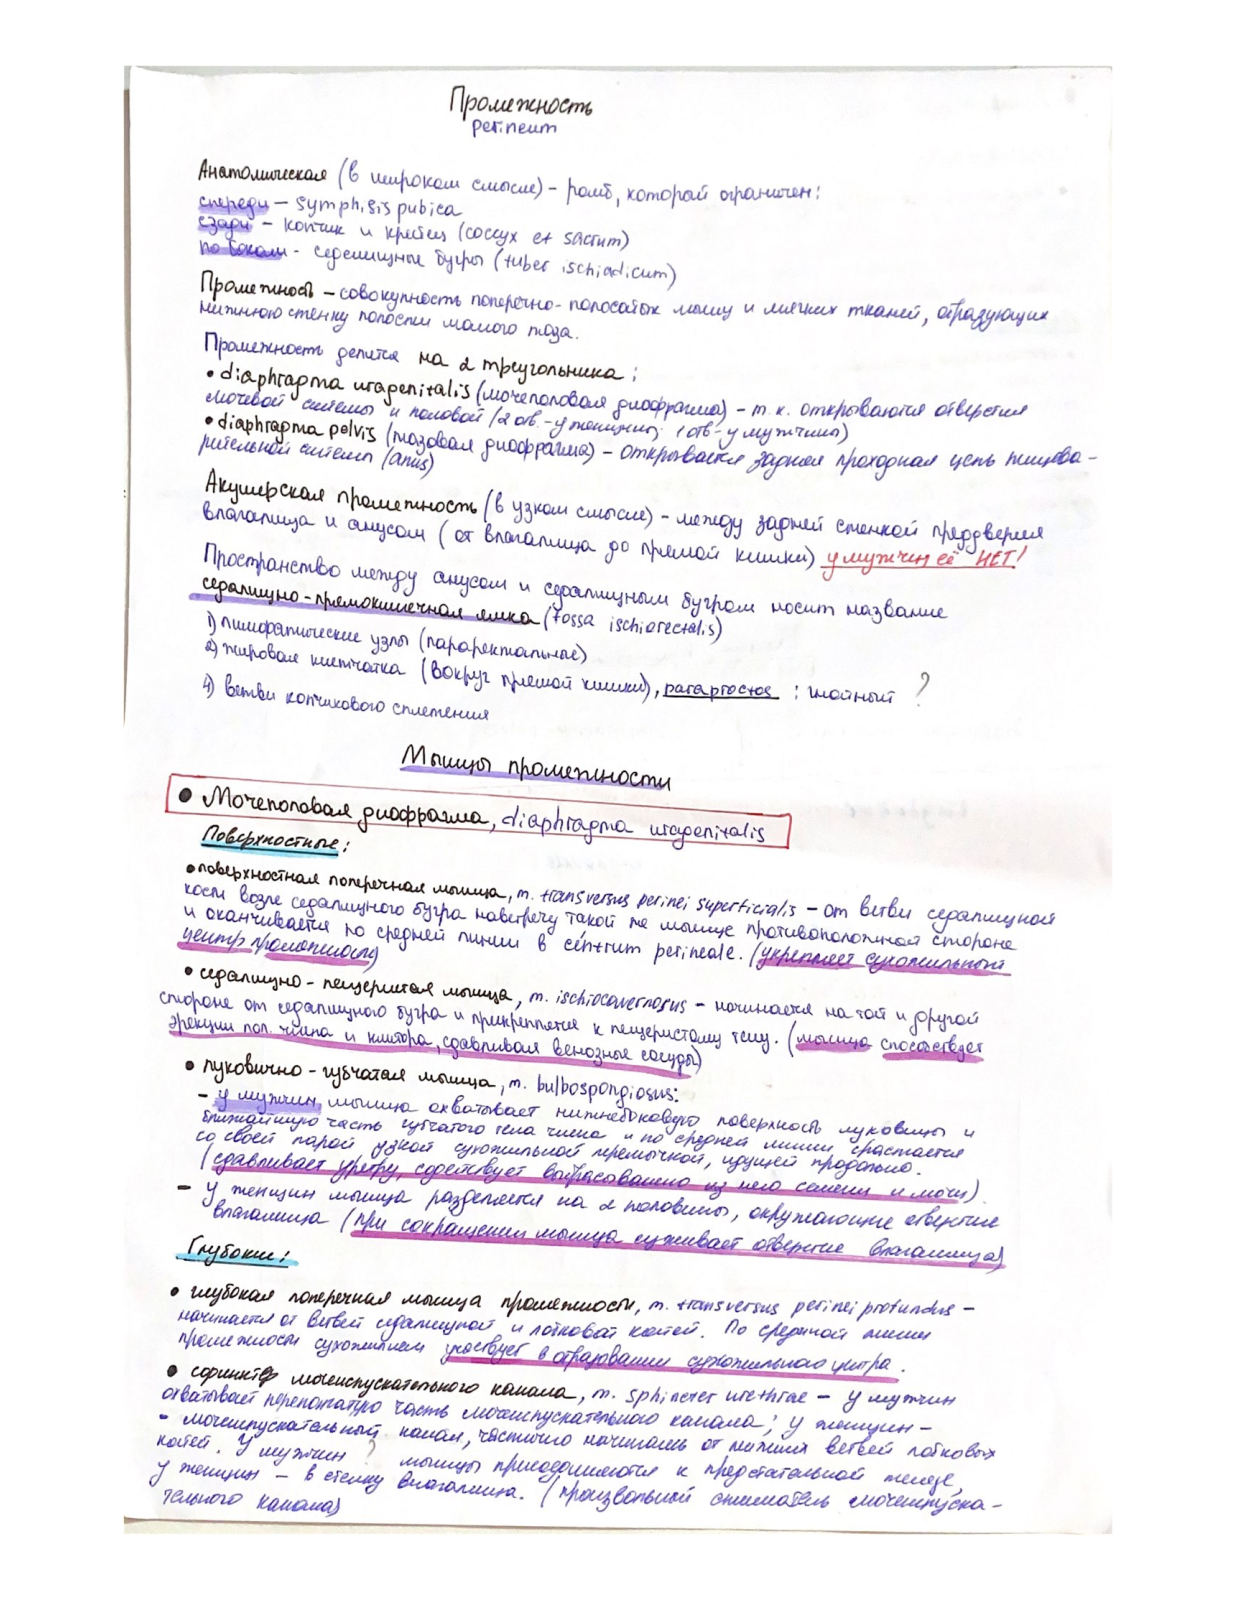 Промежность
perineum
Анатомическая (в широком смысле) – ромб, который ограничен:
спереди – symphisis pubica
сзади – копчик и крестец (coccyx et sacrum)
по бокам - седалищные бугры (tuber ischiadicum)
Промежность – совокупность поперечно-полосатых мышц и мягких тканей, образующих
нижнюю стенку полости малого таза.
Промежность делится на 2 треугольника:
• diaphragma urogenitalis (мочеполовая диафрагма) – т.к. открываются отверстия
мочевой системы и половой (2 отв.-у женщины; 1 отв-у мужчины)
• diaphragma pelvis (тазовая диафрагма) – открывается задняя проходная цепь пищева-
рительной системы (anus)
Акушерская промежность (в узком смысле) – между задней стенкой преддверия
влагалища и анусом (от влагалища до прямой кишки) у мужчин её НЕТ!
Пространство между анусом и седалищным бугром носит название
седалищно-прямокишечная ямка (fossa ischiorectalis)
1) лимфатические узлы (параректальные)
2) жировая клетчатка (вокруг прямой кишки), : гнойный ?
4) ветви копчикового сплетения
Мышцы промежности
• Мочеполовая диафрагма, diaphragma urogenitalis
Поверхностные:
• поверхностная поперечная мышца, m. transversus perinei superficialis – от ветви седалищной
кости возле седалищного бугра навстречу такой же мышце противоположной стороне
и оканчивается по средней линии в centrum perineale. (укрепляет сухожильный
центр промежности)
• седалищно-пещеристая мышца, m. ischiocavernosus – начинается на той и другой
стороне от седалищного бугра и прикрепляется к пещеристому телу. (мышца способствует
эрекции пол. члена и клитора, сдавливая венозные сосуды)
• луковично-губчатая мышца, m. bulbospongiosus:
- у мужчин мышца охватывает нижнебоковую поверхность луковицы и
ближайшую часть губчатого тела члена и по средней линии срастается
со своей парой узкой сухожильной перемычкой, идущей продольно.
(сдавливает уретру, содействует выбрасыванию из него семени и мочи).
– у женщин мышца разделяется на 2 половины, окружающие отверстие
влагалища (при сокращении мышца суживает отверстие влагалища)
Глубокие:
• глубокая поперечная мышца промежности, m. transversus perinei profundus –
начинается от ветвей седалищной и лобковой костей. По срединой линии
промежности сухожилием участвует в образовании сухожильного центра.
• сфинктер мочеиспускательного канала, m. sphincter urethrae – у мужчин
охватывает перепончатую часть мочеиспускательного канала; у женщин –
- мочеиспускательный канал, частично начинаясь от нижних ветвей лобковых
костей. У мужчин ? мышцы присоединяются к предстательной железе,
у женщин – в стенку влагалища. (произвольный сжиматель мочеиспуска-
тельного канала)